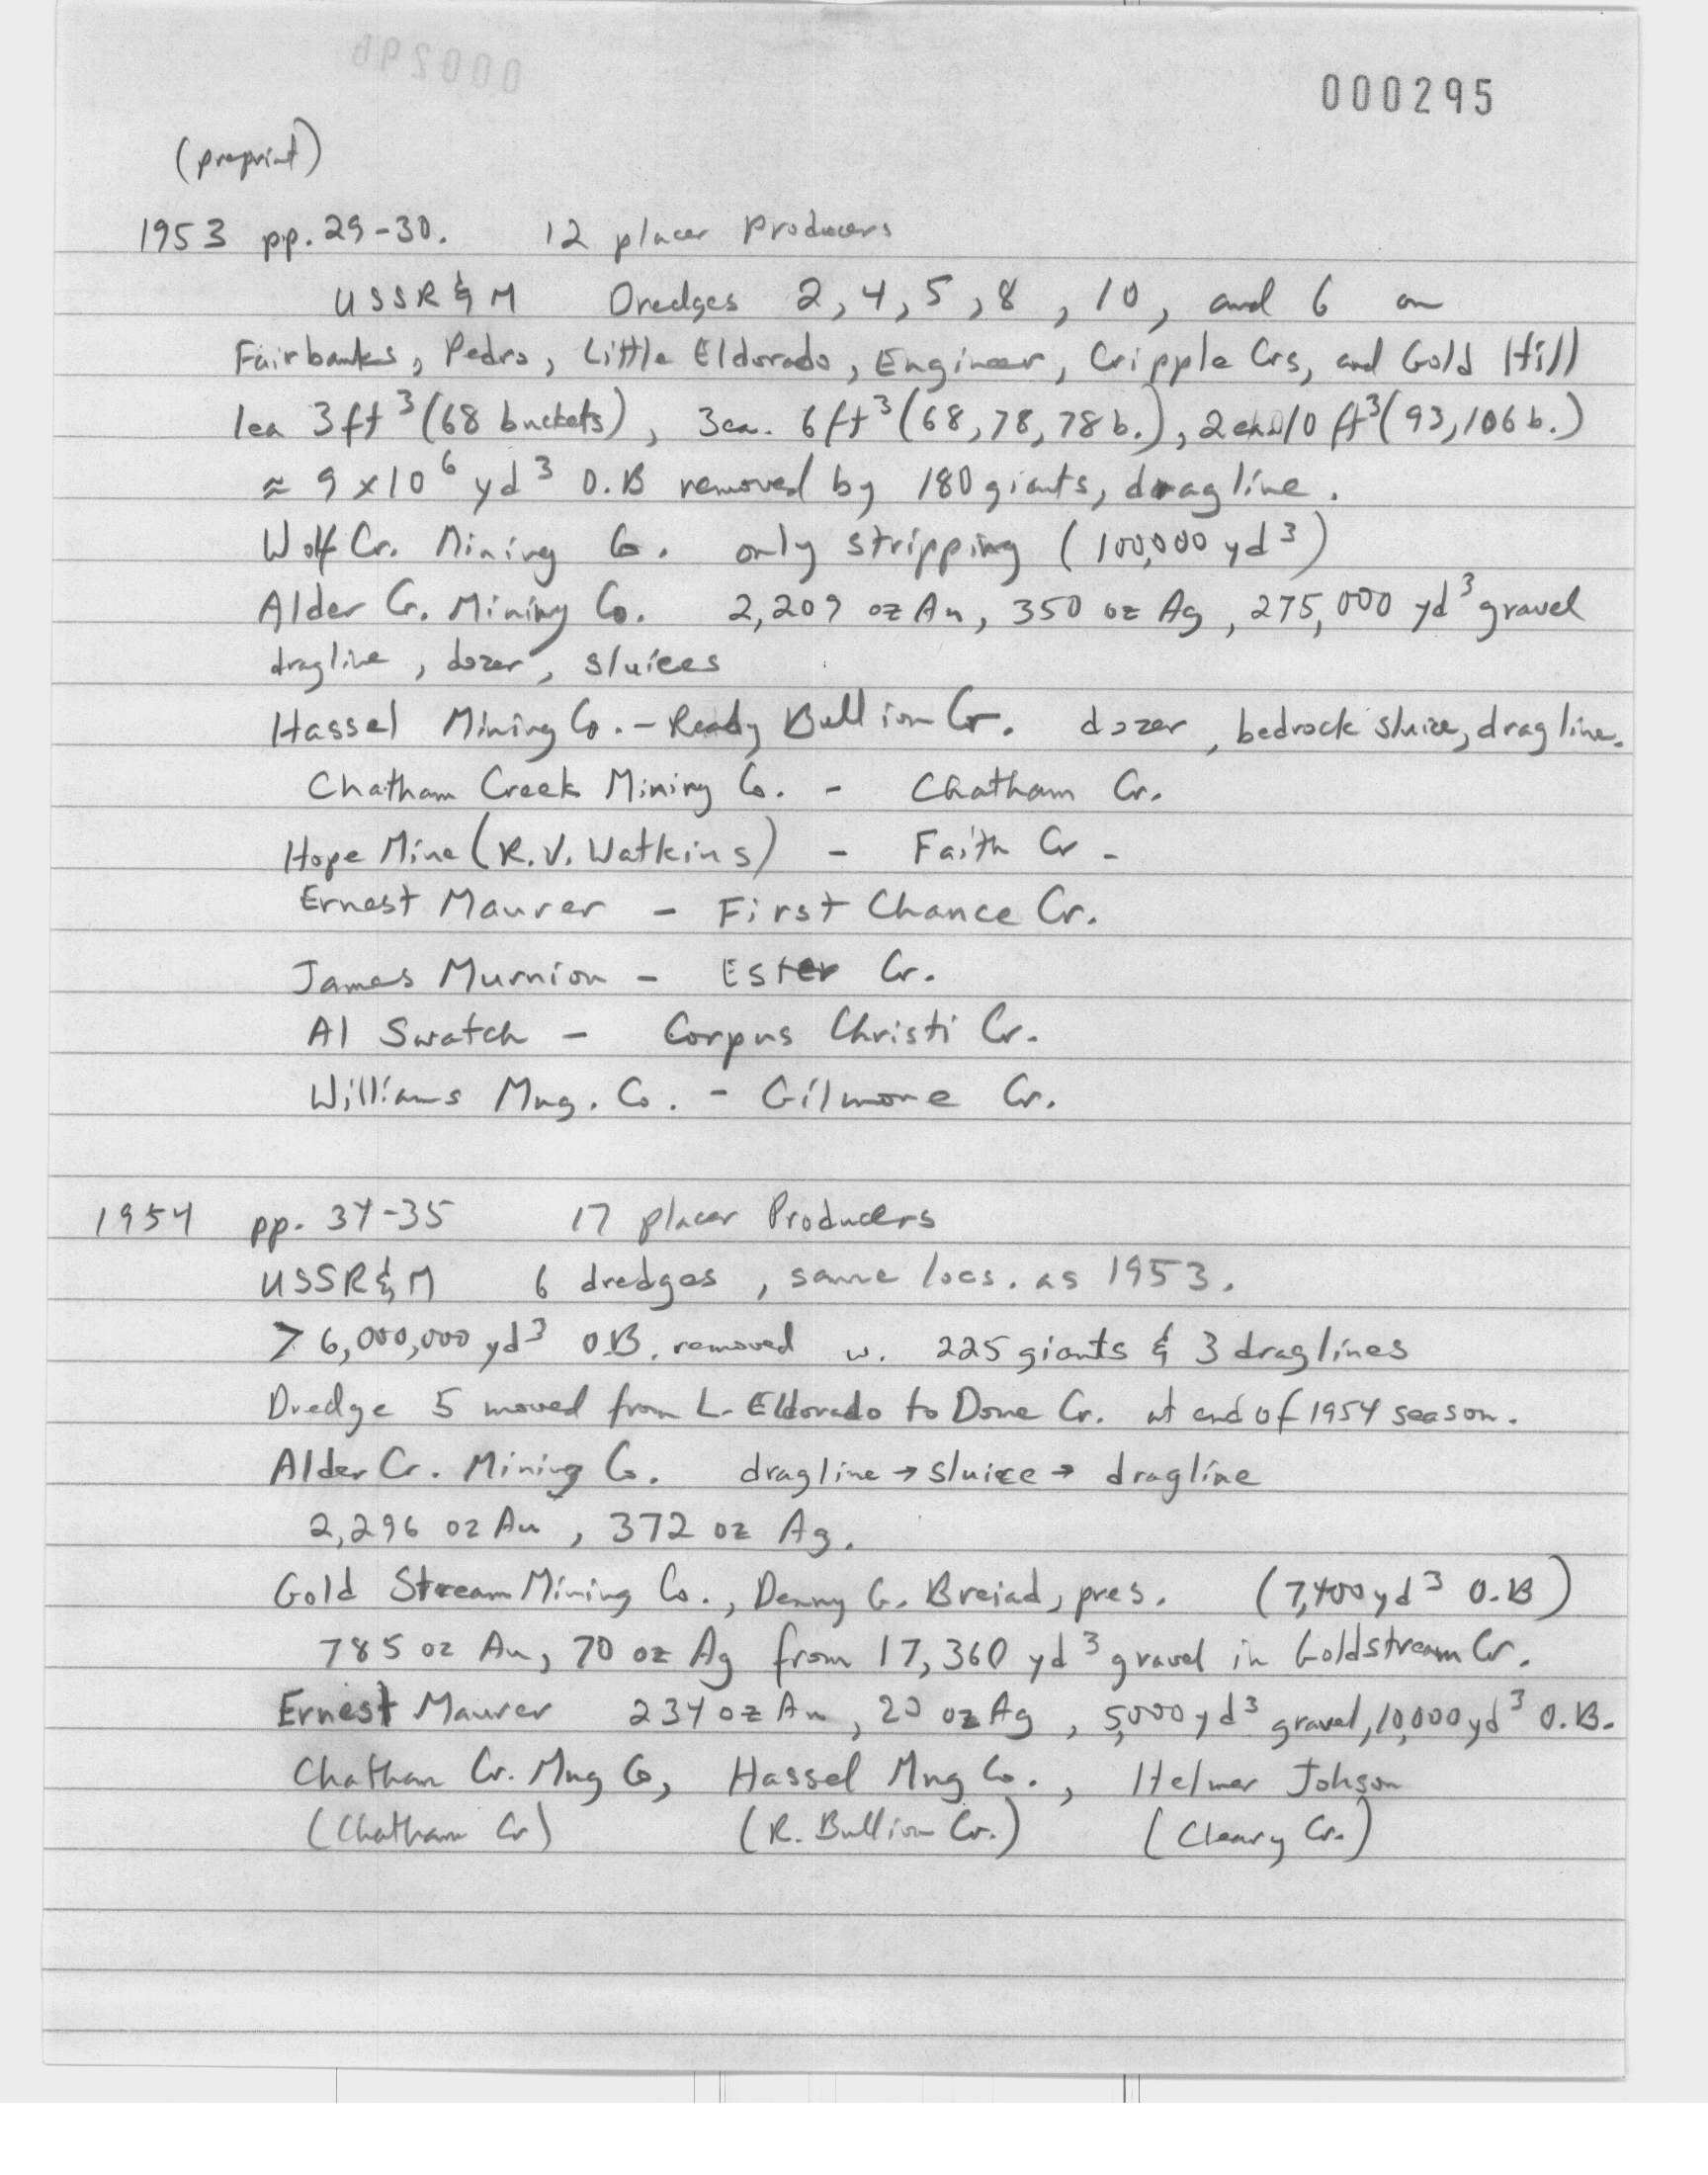 000295
(preprint)
1953 pp. 29-30. 12 placer Producers
USSR & M Dredges 2, 4, 5, 8, 10, and 6 on
Fairbanks, Pedro, Little Eldorado, Engineer, Cripple Crs, and Gold Hill
1ea 3ft³ (68 buckets), 3ea. 6ft³ (68, 78, 78 b.), 2 ea 10 ft³ (93, 106 b.)
≈ 9 x 10⁶ yd³ O.B removed by 180 giants, dragline.
Wolf Cr. Mining Co. only stripping (100,000 yd³)
Alder Cr. Mining Co. 2,209 oz Au, 350 oz Ag, 275,000 yd³ gravel
dragline, dozer, sluices
Hassel Mining Co. - Ready Bullion Cr. dozer, bedrock sluice, dragline.
Chatham Creek Mining Co. - Chatham Cr.
Hope Mine (R.V. Watkins) - Faith Cr -
Ernest Maurer - First Chance Cr.
James Murnion - Ester Cr.
Al Swatch - Corpus Christi Cr.
Williams Mng. Co. - Gilmore Cr.
1954 pp. 34-35 17 placer Producers
USSR & M 6 dredges, same locs. as 1953.
> 6,000,000 yd³ O.B. removed w. 225 giants & 3 draglines
Dredge 5 moved from L. Eldorado to Dome Cr. at end of 1954 season.
Alder Cr. Mining Co. dragline → sluice → dragline
2,296 oz Au, 372 oz Ag.
Gold Stream Mining Co., Denny G. Breiad, pres. (7,400 yd³ O.B)
785 oz Au, 70 oz Ag from 17,360 yd³ gravel in Goldstream Cr.
Ernest Maurer 234 oz Au, 20 oz Ag, 5,000 yd³ gravel, 10,000 yd³ O.B.
Chatham Cr. Mng Co, Hassel Mng Co., Helmer Johson
(Chatham Cr) (R. Bullion Cr.) (Cleary Cr.)